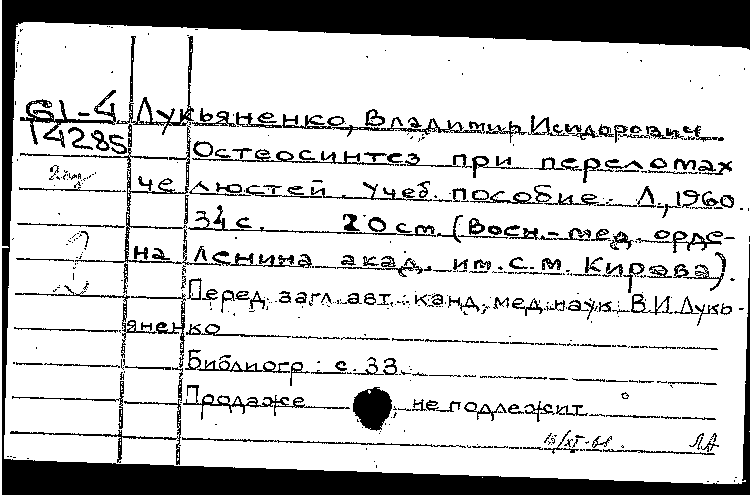 61-4 Лукьяненко, Владимир Исидорович.
14285 Остеосинтез при переломах
2 экз челюстей. Учеб. пособие. Л., 1960.
34 с. 20 см. (Воен.-мед. орде-
на Ленина акад. им. С.М. Кирова).
Перед загл. авт.: канд. мед. наук В.И. Лукь-
яненко
Библиогр.: с. 33.
Продаже не подлежит